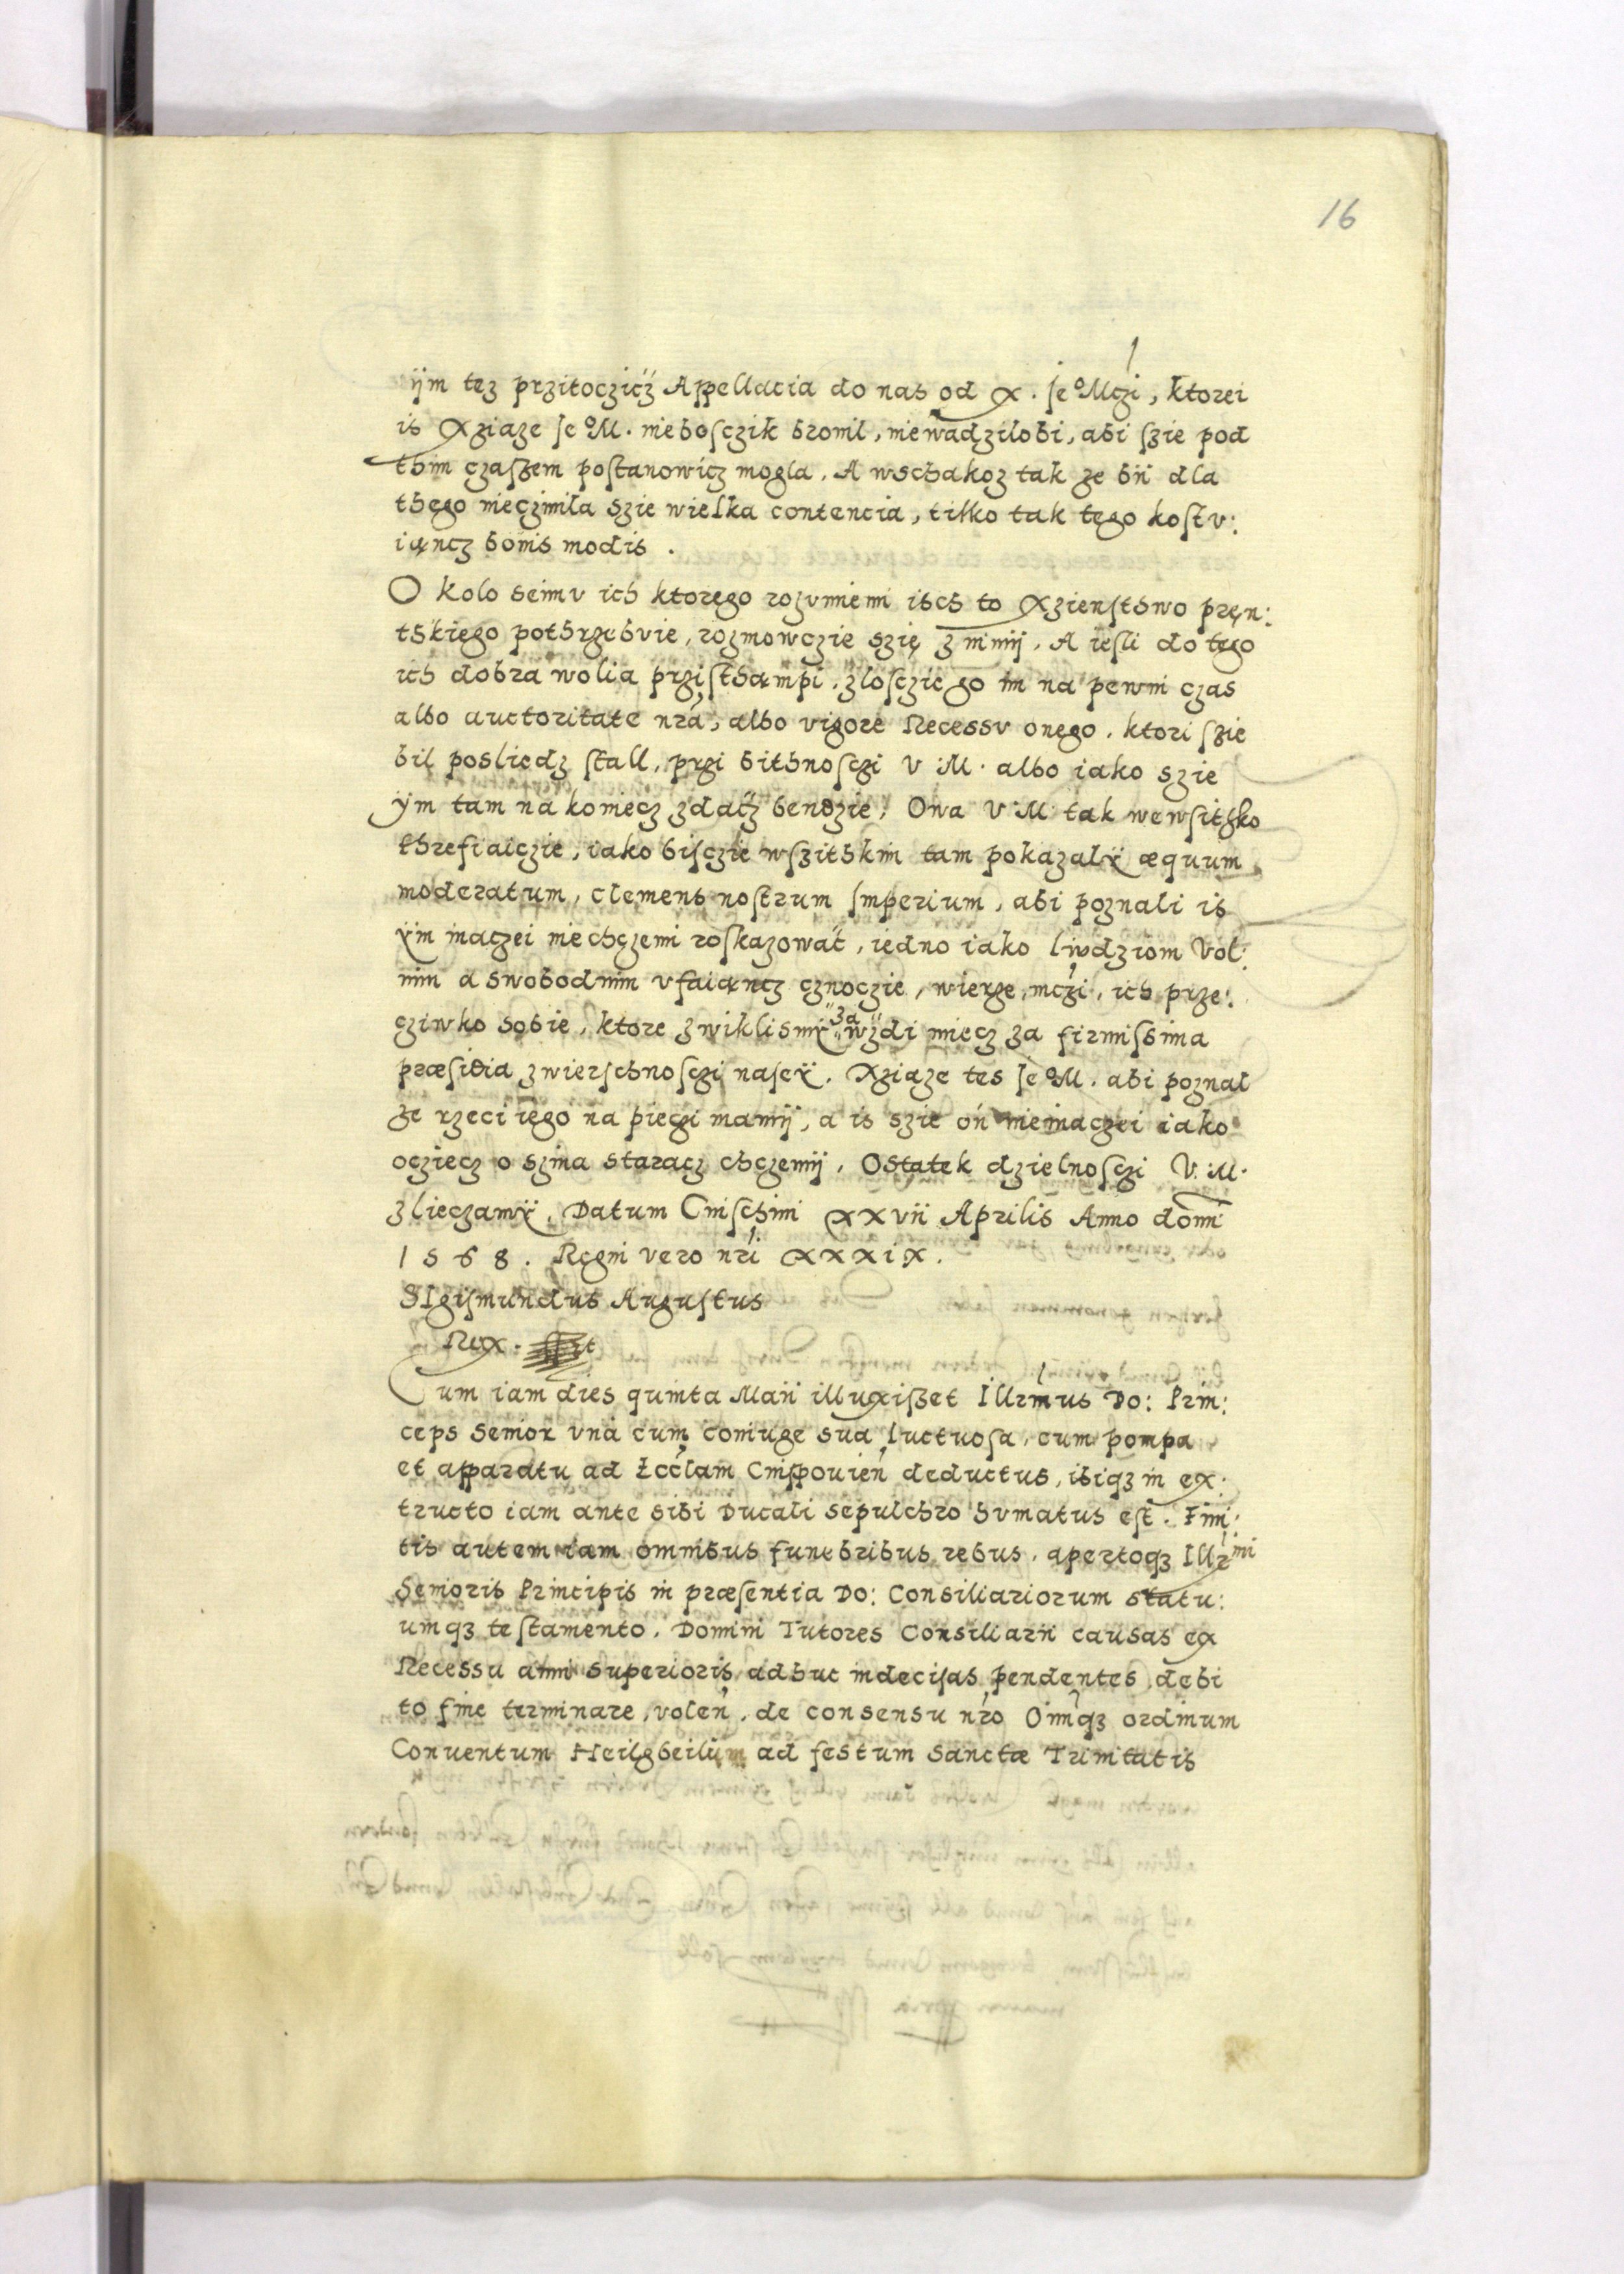 16
ijm tez przitoczicz Appellacia do nas od X. Je° Mczi, ktorei
is Xziaze Je° M. nieboſczik bronil, niewadzilobi, abi ſzie pod
thim czaſzem poſtanowicz mogla. A wschakoz tak ze bÿ dla
thego nieczinila szie wielka contencia, tilko tak tego koſtu:
iancz bonis modis.
O Kolo seimu ich ktorego rozumiemi isch to Xzienſthwo pręn:
tskiego pothrzebuie, rozmowczie szię z nimij. A ieſli do tego
ich dobra wolia prziſthąmpi, zloſczie go im na pewni czas
albo auctoritate nrá, albo vigore Recessu onego, ktori ſzie
bil posliedz ſtall, przi bithnoſczi V. M. albo iako szie
ÿm tam na koniecz zdacz bendzie, Owa V M tak wewſitzko
threfiaiczie, iako biſczie wſzithkim tam pokazalÿ æquum
moderatum, clemens noſtrum Imperium, abi poznali is
ÿm inaczei niechczemi roſkazowať, iedno iako liudziom Vol:
nim a swobodnim vfaiąncz cznoczie, wierze, mczi, ich prze:
cziwko sobie, ktore zwiklismÿ za wzdi miecz za firmiſsima
præſidia zwierschnoſczi naſeÿ. Xziaze tes Je° M. abi poznal
ze rzeci iego na piecżi mamij, a is szie oń nieinaczei iako
ocziecz o szina staracz chczemij. Ostatek dzielnoſczi V. M.
zlieczamÿ. Datum Cniſchini XXVII Aprilis Anno domi
1568. Regni vero nri XXXIX.
SIgiſmundus Auguſtus
Rex.
Cum iam dies quinta Maii illuxiſzet Illrmus Do: Prin:
ceps Senior vnà cum coniuge sua luctuoſa, cum pompa
et apparatu ad Ecclam Cnippouień deductus, ibiqz in ex:
tructo iam ante sibi Ducali sepulchro humatus eſt. Fini:
tis autem iam omnibus funebribus rebus, apertoqz Illrmi
Senioris Principis in præſentia Do: Consiliariorum statu:
umqz teſtamento. Domini Tutores Consiliarii causas ex
Recessu anni superioris adhuc indeciſas pendentes debi
to fine terminare, voleń, de consensu nro Oimqz ordinum
Conuentum Heilgbeilum ad festum Sanctæ Trinitatis